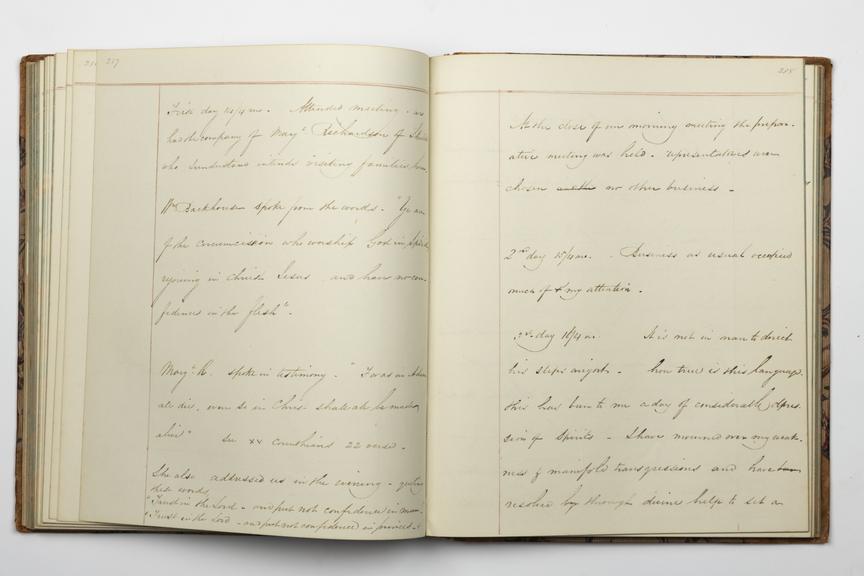 217
First day 14/4 mo. Attended meeting - we
had the company of Margt Richardson of
who intends visiting families from
Wm Backhouse spoke from the words - "Ye are
of the circumcision who worship God in spirit
rejoicing in Christ Jesus and have no con-
fidence in the flesh".
Margt R. spoke in testimony - "For as in Adam
all die, even so in Christ shall all be made
alive" See xv Corinthians 22 verse -
She also addressed us in the evening -
these words
"Trust in the Lord - and put not confidence in man"
"Trust in the Lord - and put not confidence in princes"
218
At the close of our morning meeting the prepar-
ative meeting was held - representatives were
chosen no other business -
2nd day 15/4 mo. Business as usual occupied
much of my attention.
3rd day 16/4 m. It is not in man to direct
his steps aright - how true is this language
this has been to me a day of considerable depres
sion of spirits - I have mourned over my weak-
ness & manifold transgressions and have been
resolved by through divine help to set a